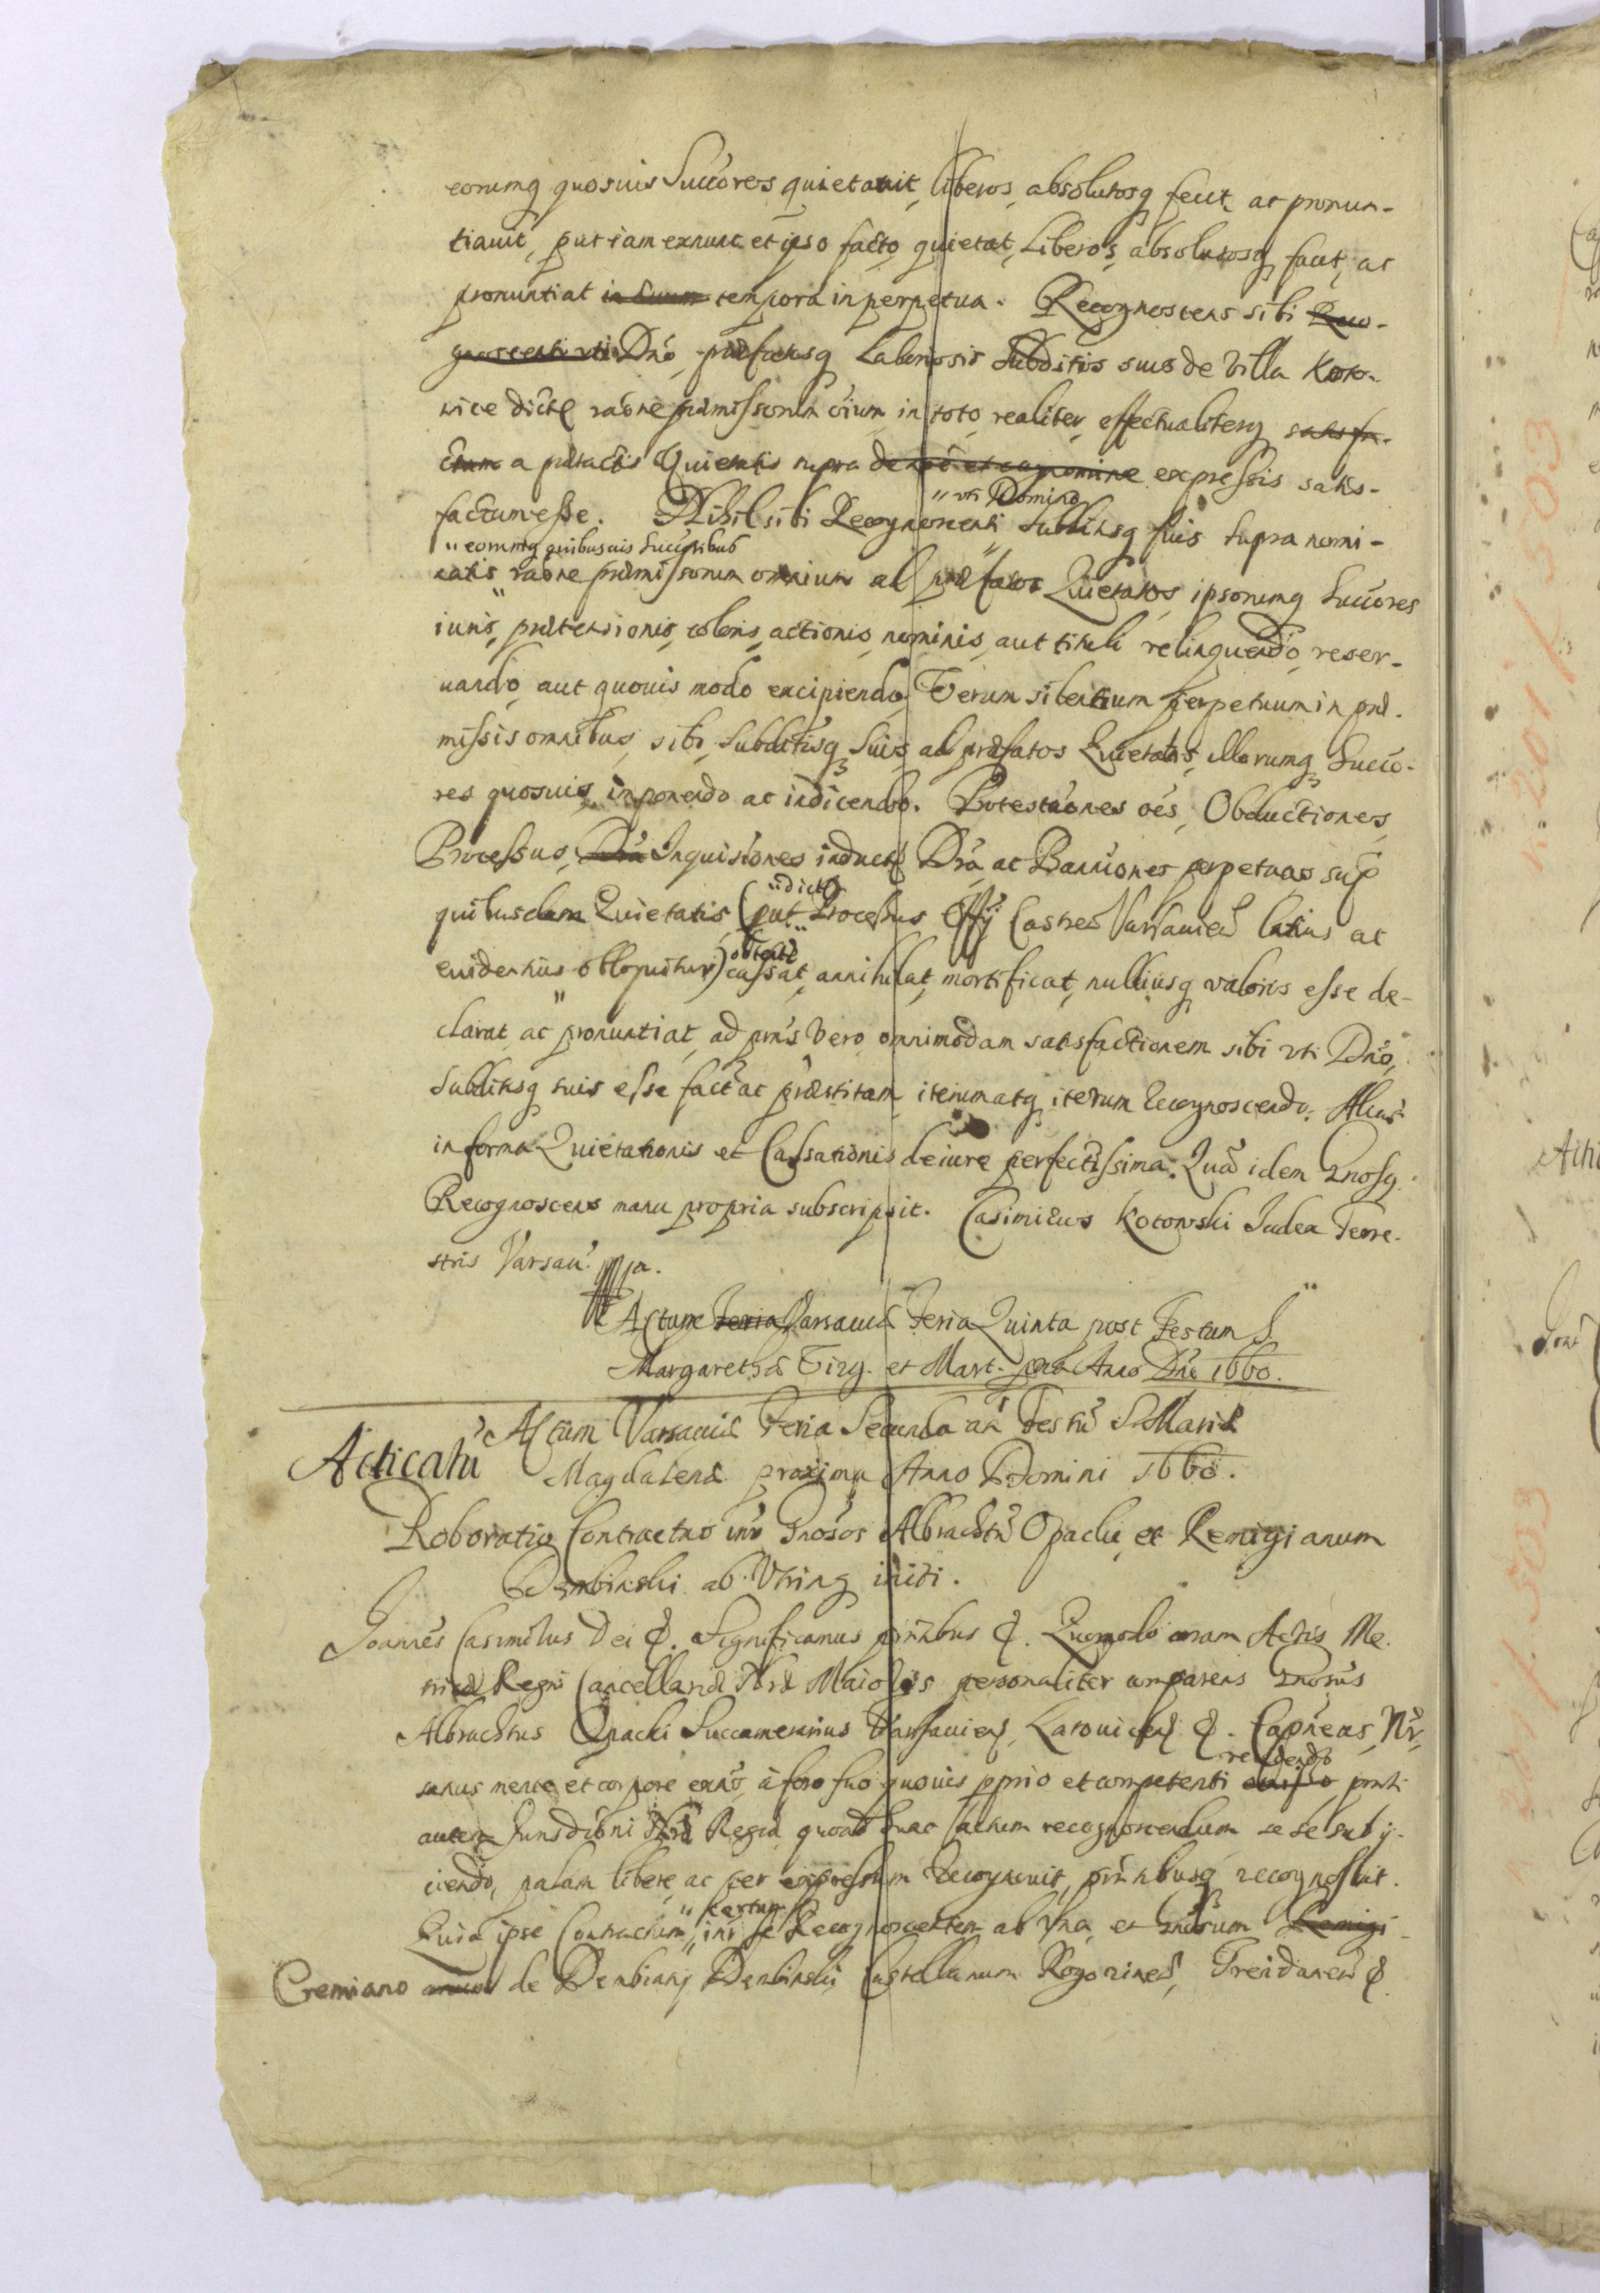 eorumq quosuis Succores quietauit, liberos, absolutosq fecit, ac pronun-
tiauit, put iam exnunc et ipso facto quietat, Liberos, absolutosq facit, ac
pronuntiat in suum tempora in perpetua. Recognoscens sibi Reco-
gnoscenti uti Dno, præfatisq Laboriosis Subditis suis de Villa Koto-
wice dictę raone præmissorum oium in toto, realiter, effectualiterq satisfa-
ctum a prætactis Quietatis supra de noe et cognomine expressis satis-
factum esse. Nihil sibi Recognoscenti "uti Domino Subditisq suis supra nomi-
natis "eorumq quibusuis Succoribus raone præmissorum omnium ad præfatos Quietatos ipsorumq Succores
iuris, prætensionis, coloris, actionis, nominis, aut tituli relinquendo, reser-
uando, aut quouis modo excipiendo, Verum silentium perpetuum in præ-
missis omnibus, sibi, Subditisq Suis ad præfatos Quietatos, illorumq Succo-
res quosuis imponendo ac indicendo. Protestaones oes, Obductiones,
Processus, Dra Inquisiones inductę Dra, ac Banniones perpetuas sup
quibusdam Quietatis (put "dicto Processus Offy Castren Varsauien latius ac
euidentius obloquitur) obtente cassat, annihilat, mortificat, nulliusq valoris esse de-
clarat, ac pronuntiat, ad prns vero omnimodam satisfactionem sibi uti Dno,
Subditisq suis esse fact ac præstitam iterum atq iterum Recognoscendo.
in forma Quietationis et Cassationis de iure perfectissima. Qua idem Gnosq
Recognoscens manu propria subscripsit. Casimirus Kotowski Iudex Terre-
stris Varsau. mpa.
Actum Feria Varsauiæ Feria Quinta post Festum S.
Margarethæ Virg. et Mart. Anno Dni 1660.
Actum Varsauiæ Feria Secunda an Festu S. Mariæ
Acticatu Magdalenæ proxima Anno Domini 1660.
Roboratio Contractus int Gnosos Albrachtu Opacki et Remigianum
Dembinski ab Utrinq initi.
Joannes Casimirus Dei &. Significamus prntibus &. Quomodo coram Actis Me-
trices Regni Cancellariæ Nræ Maioris personaliter comparens Gnosus
Albrachtus Opacki Succamerarius Varsauien, &. Capneus, Nr,
sanus mente et corpore exns, à foro suo quouis pprio et competenti recedendo prnti
autem Jurisdioni Nræ Regiæ quoad hunc actum recognoscendum sese subij-
ciendo, palam libere, ac per expressum Recognouit, prntibusq recognoscit.
Quia ipse Contractum "certum int se Recognoscentem ab Una, et Gnosum Remigi-
Cremiano anum de Dembiany Dembinski Castellanum Rogozinen, &.